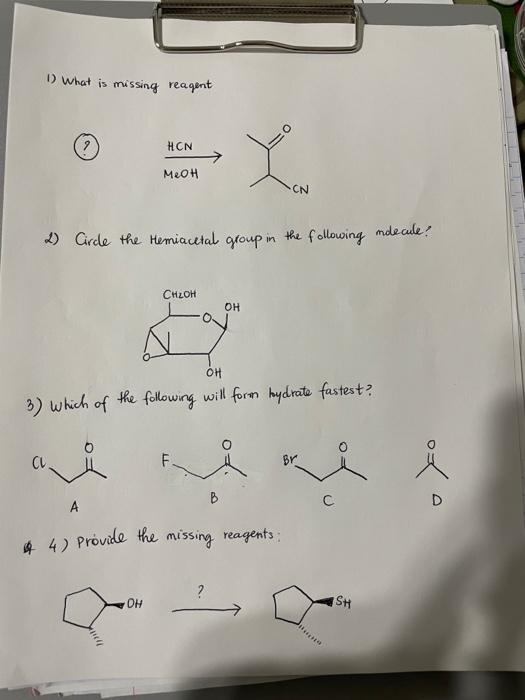 1) What is missing reagent
? HCN
MeOH
O
CN
2) Circle the Hemiacetal group in the following molecule?
CH2OH
O OH
O
OH
3) Which of the following will form hydrate fastest?
Cl O F O Br O O
A B C D
4) Provide the missing reagents:
OH ? SH